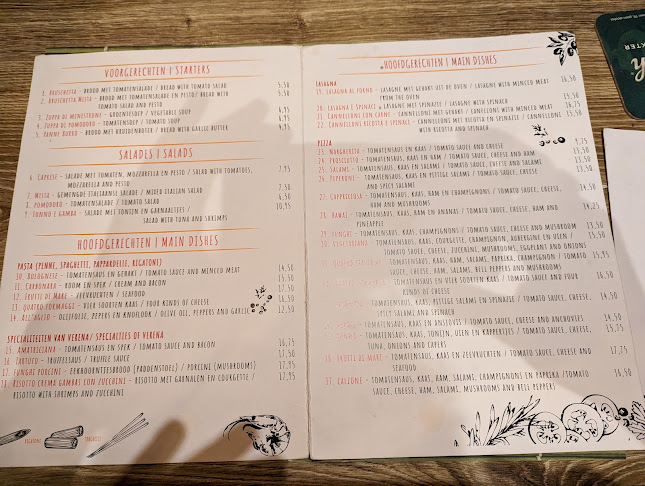 VOORGERECHTEN | STARTERS
1. BRUSCHETTA - BROOD MET TOMATENSALADE / BREAD WITH TOMATO SALAD 5,50
2. BRUSCHETTA MISTA - BROOD MET TOMATENSALADE EN PESTO/ BREAD WITH 5,50
TOMATO SALAD AND PESTO
3. ZUPPA DI MENESTRONE - GROENTESOEP / VEGETABLE SOUP 6,95
4. ZUPPA DI POMODORO - TOMATENSOEP / TOMATO SOUP 6,95
5. PANNE BURRO - BROOD MET KRUIDENBOTER / BREAD WITH GARLIC BUTTER 4,95
SALADES | SALADS
6. CAPRESE - SALADE MET TOMATEN, MOZZARELLA EN PESTO / SALAD WITH TOMATOES, 7,95
MOZZARELLA AND PESTO
7. MISTA - GEMENGDE ITALIAANSE SALADE / MIXED ITALIAN SALAD 7,50
8. POMODORO - TOMATENSALADE / TOMATO SALAD 6,50
9. TONNO E GAMBA - SALADE MET TONIJN EN GARNAALTJES / 10,95
SALAD WITH TUNA AND SHRIMPS
HOOFDGERECHTEN | MAIN DISHES
PASTA (PENNE, SPAGHETTI, PAPPARDELLE, RIGATONI)
10. BOLOGNESE - TOMATENSAUS EN GEHAKT / TOMATO SAUCE AND MINCED MEAT 14,50
11. CARBONARA - ROOM EN SPEK / CREAM AND BACON 15,50
12. FRUTTI DI MARE - ZEEVRUCHTEN / SEAFOOD 17,50
13. QUATRO FORMAGGI - VIER SOORTEN KAAS / FOUR KINDS OF CHEESE 16,50
14. ALL'AGLIO - OLIJFOLIE, PEPERS EN KNOFLOOK / OLIVE OIL, PEPPERS AND GARLIC 12,50
SPECIALITEITEN VAN VERENA/ SPECIALTIES OF VERENA
15. AMATRICIANA - TOMATENSAUS EN SPEK / TOMATO SAUCE AND BACON 16,75
16. TARTUFO - TRUFFELSAUS / TRUFFLE SAUCE 17,50
17. FUNGHI PORCINI - EEKHOORNTJESBROOD (PADDENSTOEL) / PORCINI (MUSHROOMS) 17,95
18. RISOTTO CREMA GAMBAS CON ZUCCHINI - RISOTTO MET GARNALEN EN COURGETTE / 17,95
RISOTTO WITH SHRIMPS AND ZUCCHINI
RIGATONI
HOOFDGERECHTEN | MAIN DISHES
LASAGNA
19. LASAGNA AL FORNO - LASAGNE MET GEHAKT UIT DE OVEN / LASAGNE WITH MINCED MEAT 16,50
FROM THE OVEN
20. LASAGNA E SPINACI - LASAGNE MET SPINAZIE / LASAGNE WITH SPINACH 15,50
21. CANNELLONI CON CARNE - CANNELLONI MET GEHAKT / CANNELLONI WITH MINCED MEAT 16,75
CANNELLONI RICOTTA E SPINACI - CANNELLONI MET RICOTTA EN SPINAZIE / CANNELLONI 15,50
WITH RICOTTA AND SPINACH
PIZZA
23. MARGHERITA - TOMATENSAUS EN KAAS / TOMATO SAUCE AND CHEESE 9,75
24. PROSCIUTTO - TOMATENSAUS, KAAS EN HAM / TOMATO SAUCE, CHEESE AND HAM 13,50
25. SALAMI - TOMATENSAUS, KAAS EN SALAMI / TOMATO SAUCE, CHEESE AND SALAMI 13,50
26. PEPERONI - TOMATENSAUS, KAAS EN PITTIGE SALAMI / TOMATO SAUCE, CHEESE 13,50
AND SPICY SALAMI
27. CAPRICCIOSA - TOMATENSAUS, KAAS, HAM EN CHAMPIGNONS / TOMATO SAUCE, CHEESE, 14,50
HAM AND MUSHROOMS
28. HAWAI - TOMATENSAUS, KAAS, HAM EN ANANAS / TOMATO SAUCE, CHEESE, HAM AND 14,25
PINEAPPLE
29. FUNGHI - TOMATENSAUS, KAAS, CHAMPIGNONS / TOMATO SAUCE, CHEESE AND MUSHROOM 13,50
30. VEGETARIANA - TOMATENSAUS, KAAS, COURGETTE, CHAMPIGNON, AUBERGINE EN UIEN / 15,50
TOMATO SAUCE, CHEESE, ZUCCHINI, MUSHROOMS, EGGPLANT AND ONIONS
TOMATENSAUS, KAAS, HAM, SALAMI, PAPRIKA, CHAMPIGNON / TOMATO
SAUCE, CHEESE, HAM, SALAMI, BELL PEPPERS AND MUSHROOMS
TOMATENSAUS EN VIER SOORTEN KAAS / TOMATO SAUCE AND FOUR
KINDS OF CHEESE
TOMATENSAUS, KAAS, PITTIGE SALAMI EN SPINAZIE / TOMATO SAUCE, CHEESE, 14,50
SPICY SALAMI AND SPINACH
TOMATENSAUS, KAAS EN ANSJOVIS / TOMATO SAUCE, CHEESE AND ANCHOVIES
TOMATENSAUS, KAAS, TONIJN, UIEN EN KAPPERTJES / TOMATO SAUCE, CHEESE,
TUNA, ONIONS AND CAPERS
FRUTTI DI MARE - TOMATENSAUS, KAAS EN ZEEVRUCHTEN / TOMATO SAUCE, CHEESE AND 17,75
SEAFOOD
37. CALZONE - TOMATENSAUS, KAAS, HAM, SALAMI, CHAMPIGNONS EN PAPRIKA /TOMATO 16,50
SAUCE, CHEESE, HAM, SALAMI, MUSHROOMS AND BELL PEPPERS